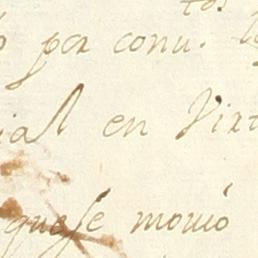 tos
por conu.
ial en Virt
quese mouió